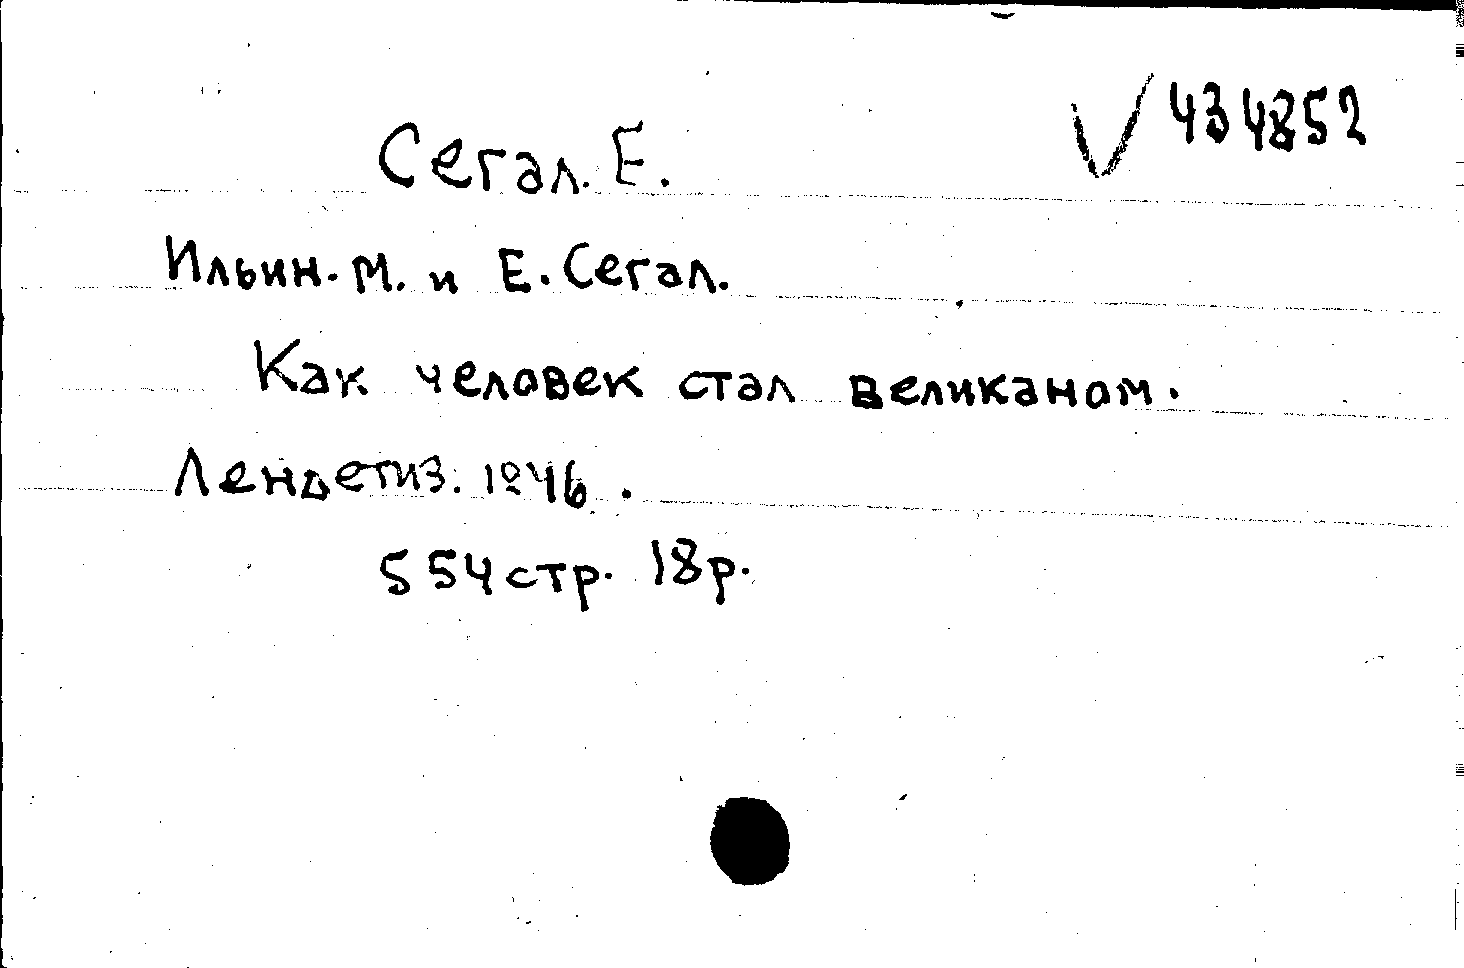 434852
Сегал. Е.
Ильин. М. и Е. Сегал.
Как человек стал великаном.
Лендетиз. 1946.
554 стр. 18 р.